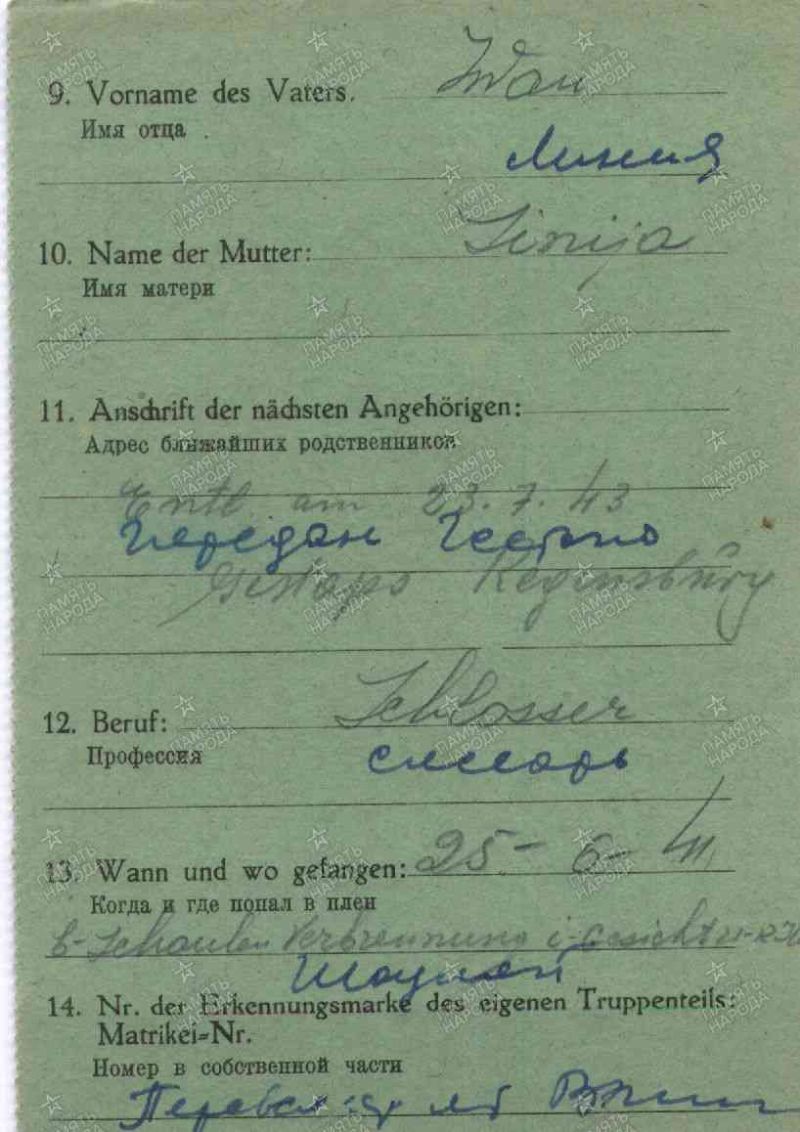 9. Vorname des Vaters. Iwan
Имя отца .
Линия
10. Name der Mutter: Linija
Имя матери
11. Anschrift der nächsten Angehörigen:
Адрес ближайших родственников
Entl. am 23.7.43
Передан Гестапо
Gestapo Regensburg
12. Beruf: Schlosser
Профессия
слесарь
13. Wann und wo gefangen: 25-6-41
Когда и где попал в плен
b-Schaulen Verbrennung i. Gesicht
Шауляй
14. Nr. der Erkennungsmarke des eigenen Truppenteils:
Matrikei=Nr.
Номер в собственной части
ПАМЯТЬ НАРОДА